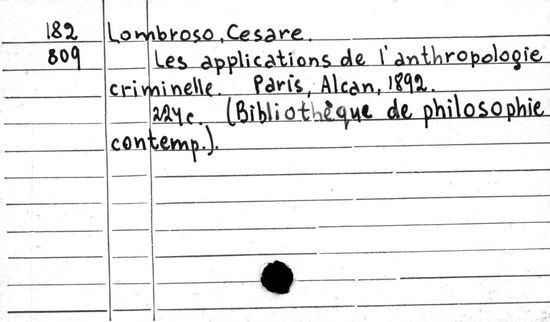 182 Lombroso, Cesare.
809 Les applications de l'anthropologie
criminelle. Paris, Alcan, 1892.
224c. (Bibliothèque de philosophie
contemp.).